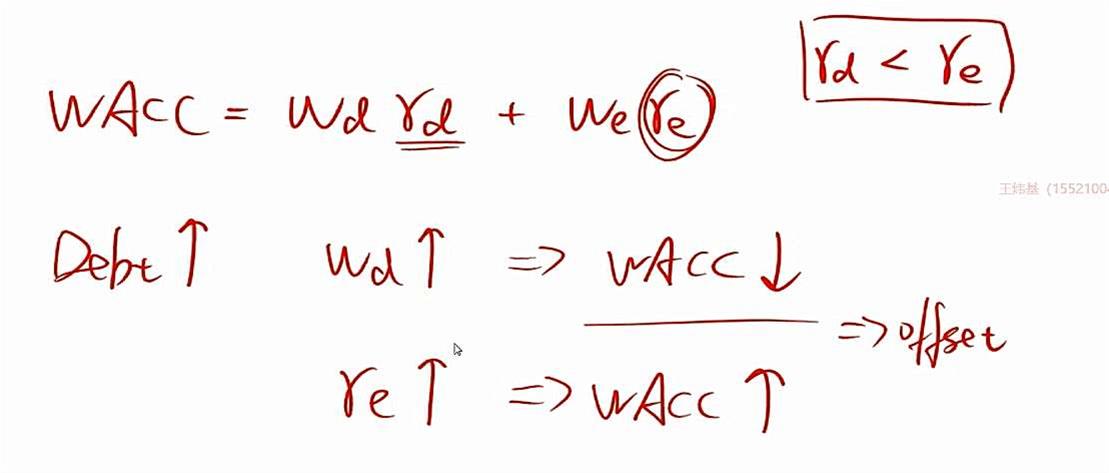 WACC = Wd rd + We re
rd < re
王炜基 (1552100
Debt ↑ Wd ↑ => WACC ↓
=> offset
re ↑ => WACC ↑